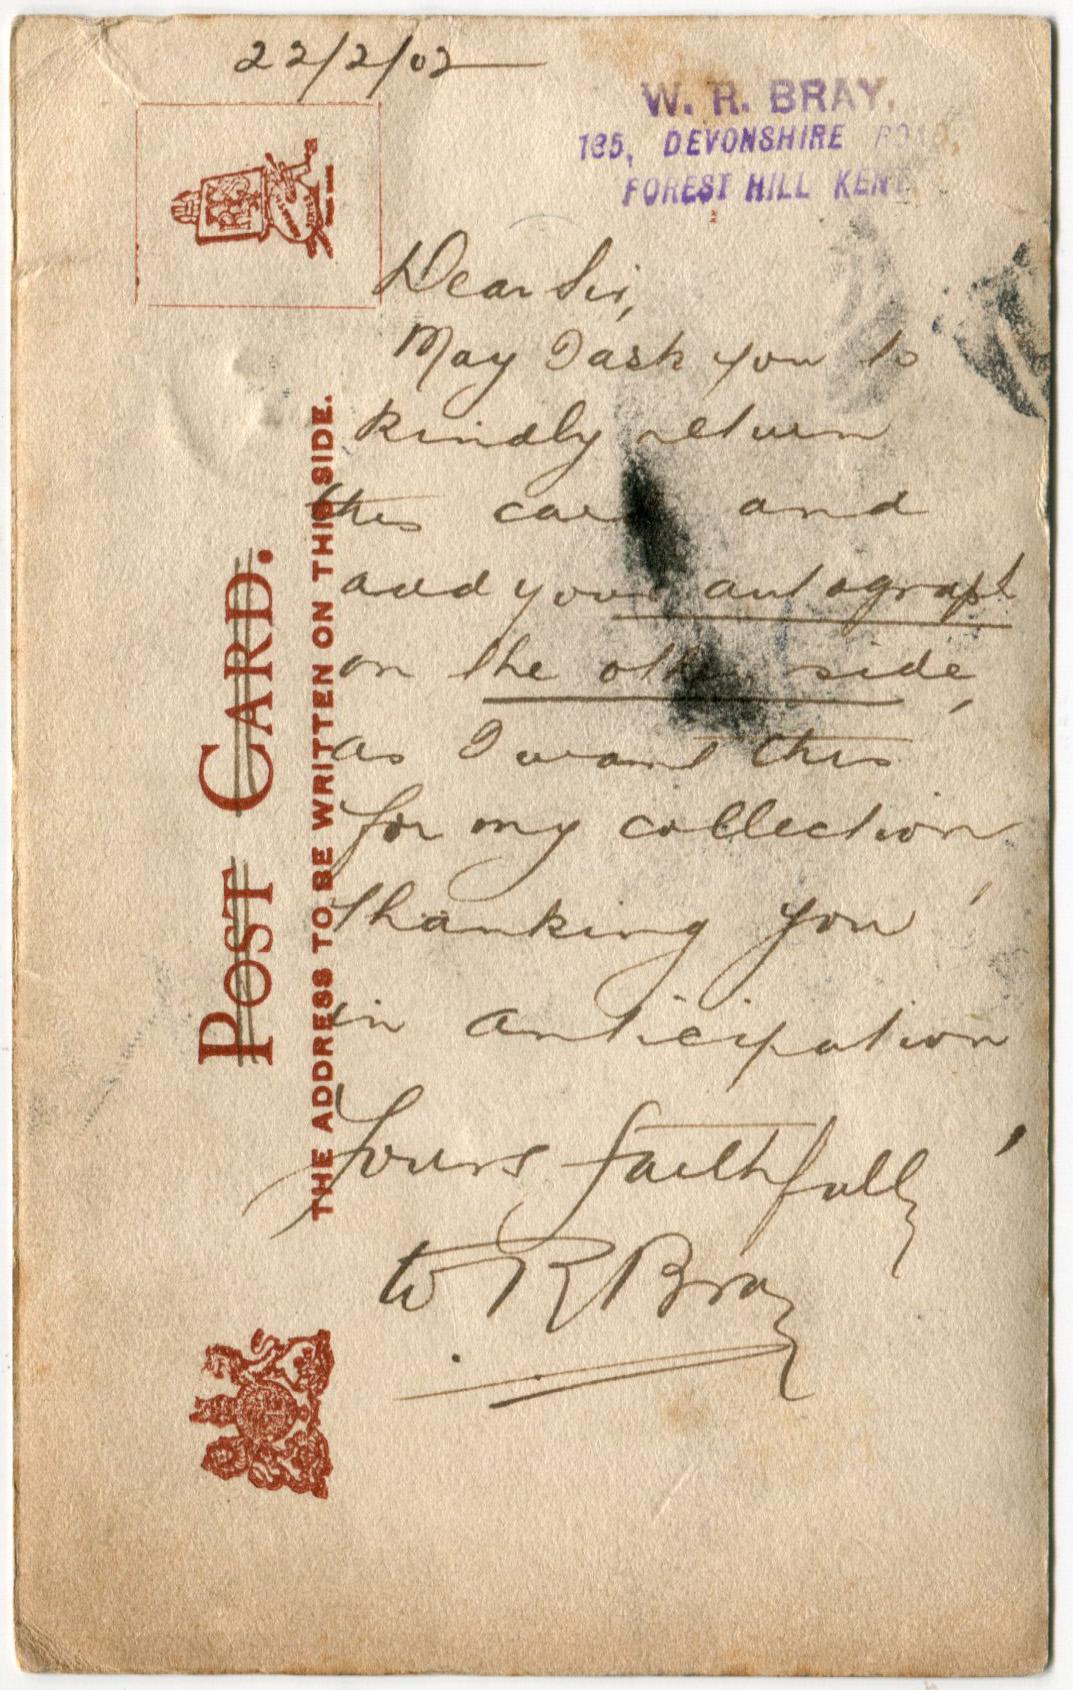 22/2/02
W. R. BRAY.
185, DEVONSHIRE ROAD,
FOREST HILL KENT
Dear Sir,
May I ask you to
kindly return
this card and
add your autograph
on the other side,
as I want this
for my collection,
thanking you
in anticipation,
Yours faithfully
W R Bray
POST CARD.
THE ADDRESS TO BE WRITTEN ON THIS SIDE.